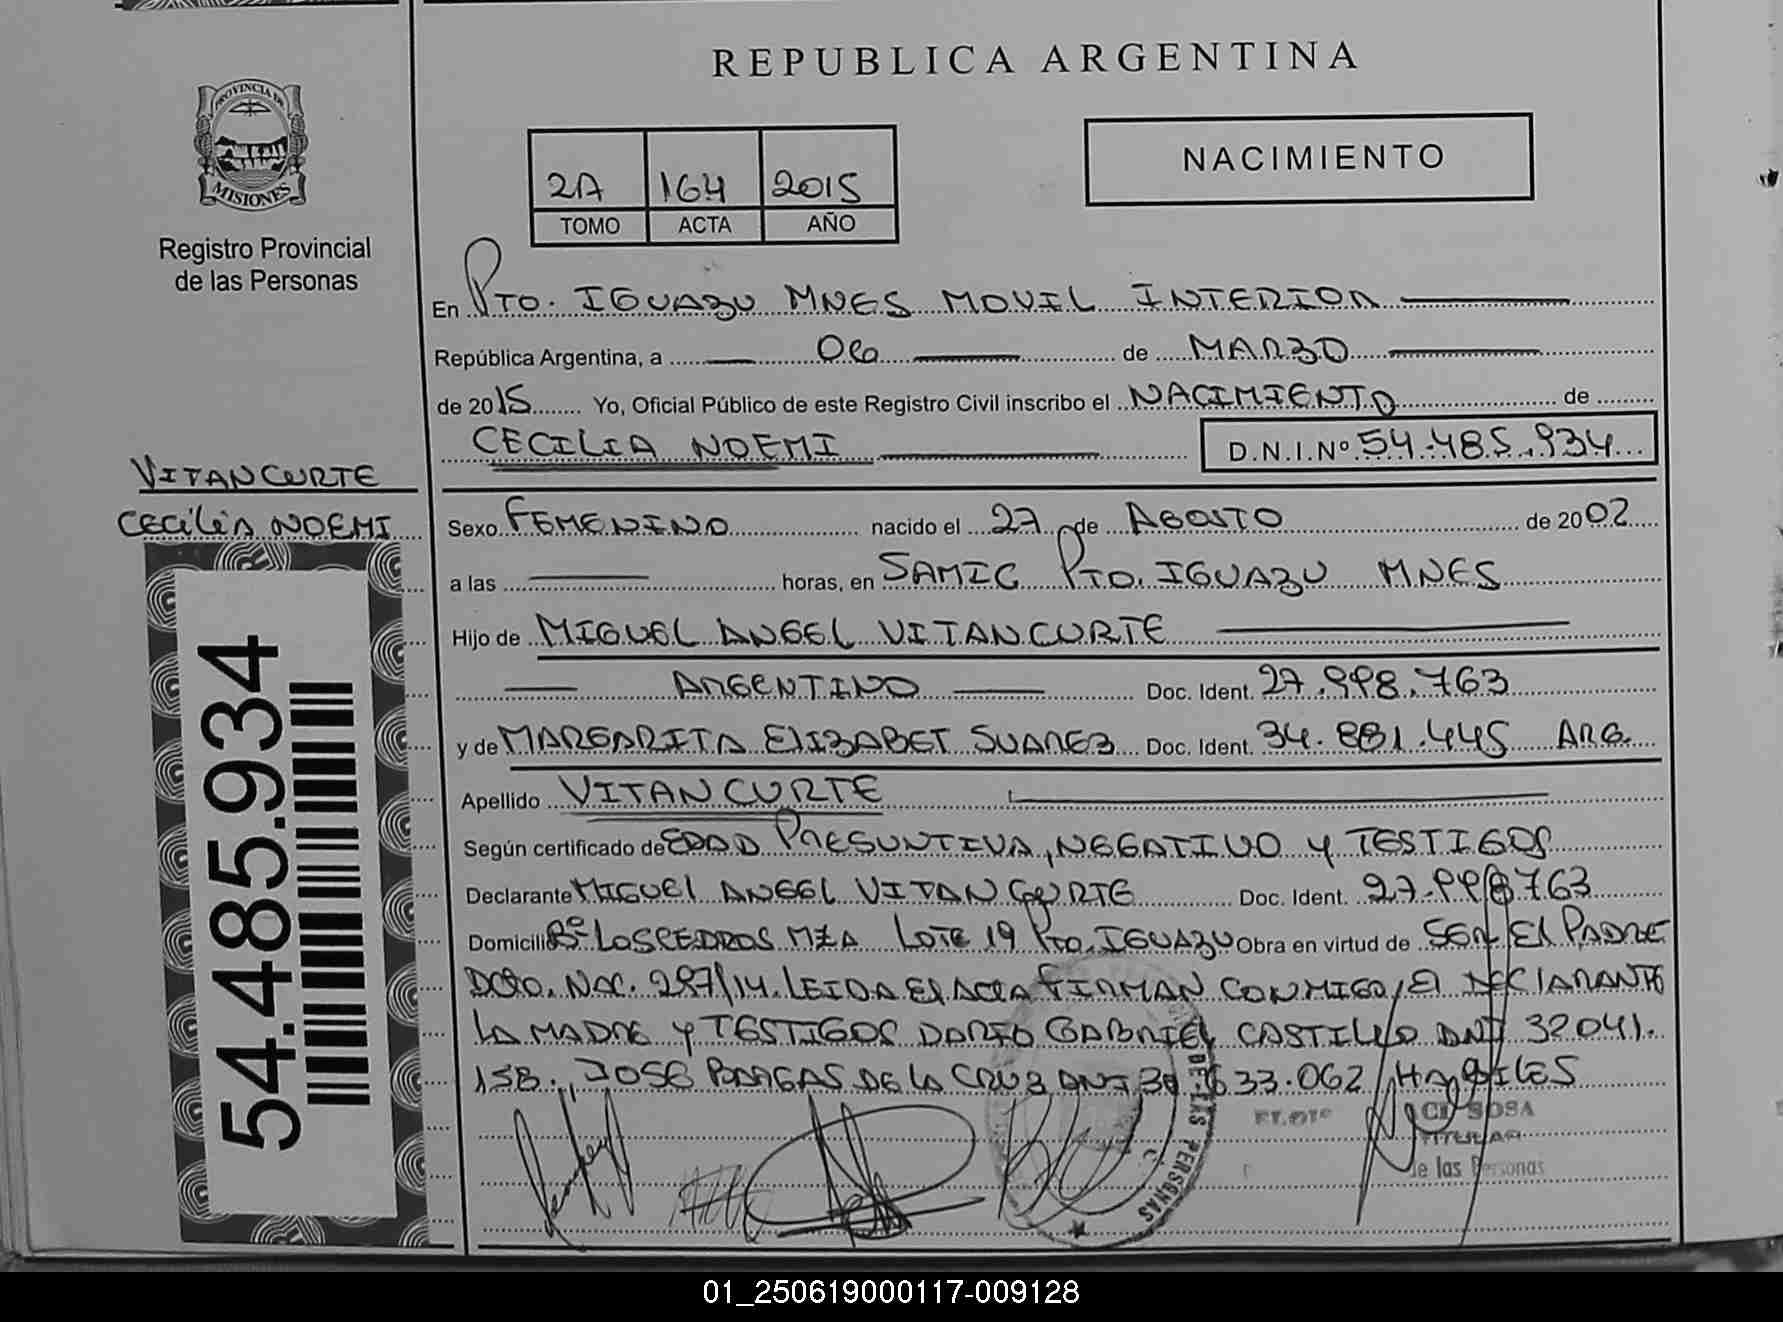 REPUBLICA ARGENTINA
PROVINCIA DE
MISIONES
Registro Provincial
de las Personas
NACIMIENTO
2A 164 2015
TOMO ACTA AÑO
En Pto. IGUAZU MNES MOVIL INTERIOR
República Argentina, a 06 de MARZO
de 2015 Yo, Oficial Público de este Registro Civil inscribo el NACIMIENTO de
CECILIA NOEMI D.N.I.Nº 54.485.934
VITANCURTE
CECILIA NOEMI
54.485.934
Sexo FEMENINO nacido el 27 de AGOSTO de 2002
a las horas, en SAMIC Pto. IGUAZU MNES
Hijo de MIGUEL ANGEL VITANCURTE
ARGENTINO Doc. Ident. 27.998.763
y de MARGARITA ELIZABET SUAREZ Doc. Ident. 34.881.445 ARG.
Apellido VITANCURTE
Según certificado de EDAD PRESUNTIVA, NEGATIVO Y TESTIGOS
Declarante MIGUEL ANGEL VITANCURTE Doc. Ident. 27.998763
Domicilio Bº LOS CEDROS MZA LOTE 19 Pto. IGUAZU Obra en virtud de SER EL PADRE
DCTO. NAC. 297/14. LEIDA EL ACTA FIRMAN CONMIGO, EL DECLARANTE
LA MADRE Y TESTIGOS DARIO GABRIEL CASTILLO DNI 32041.
158., JOSE DE LA CRUZ DNI 633.062 HABILES
DE LAS PERSONAS
SOSA
TITULAR
de las Personas
01_250619000117-009128